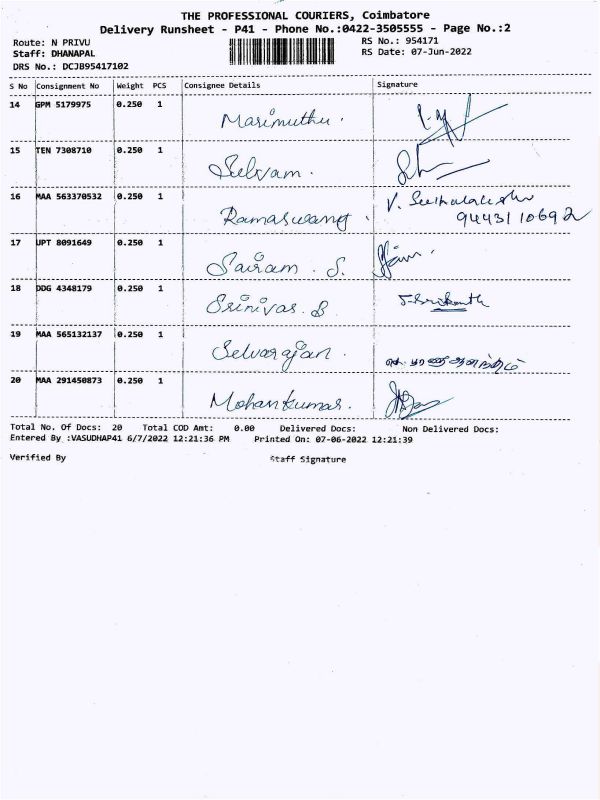 THE PROFESSIONAL COURIERS, Coimbatore
Delivery Runsheet - P41 - Phone No.:0422-3505555 - Page No.:2
Route: N PRIVU RS No.: 954171
Staff: DHANAPAL RS Date: 07-Jun-2022
DRS No.: DCJB95417102
S No Consignment No Weight PCS Consignee Details Signature
14 GPM 5179975 0.250 1 Marimuthu.
15 TEN 7308710 0.250 1 Selvam.
16 MAA 563370532 0.250 1 Ramaswamy. V.
9443110692
17 UPT 8091649 0.250 1 Sairam. S.
18 DDG 4348179 0.250 1 Srinivas. B J. Srikanth
19 MAA 565132137 0.250 1 Selvarajan.
20 MAA 291450873 0.250 1 Mohankumar.
Total No. Of Docs: 20 Total COD Amt: 0.00 Delivered Docs: Non Delivered Docs:
Entered By :VASUDHAP41 6/7/2022 12:21:36 PM Printed On: 07-06-2022 12:21:39
Verified By Staff Signature